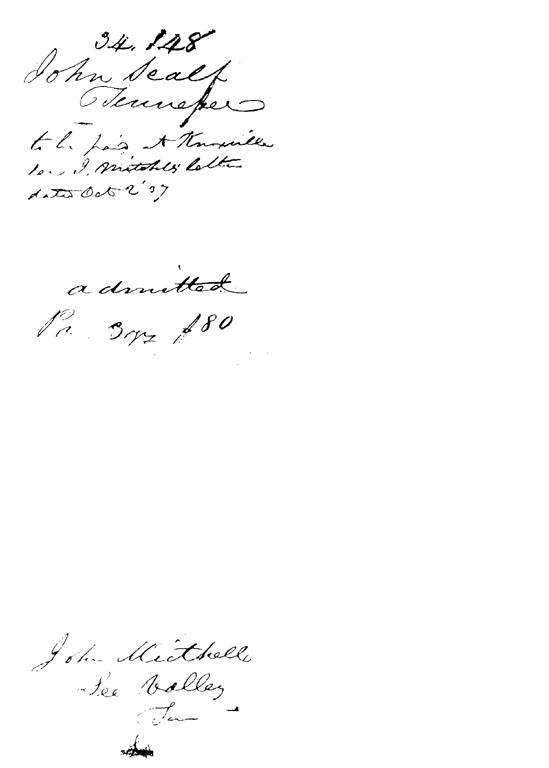 34.148
John Scalf
Tennessee
to be paid at Knoxville
see J. Mitchels letter
dated Oct 2 '37
admitted
Pr. 3 yrs $80
John Mitchell
Lee Valley
Ten